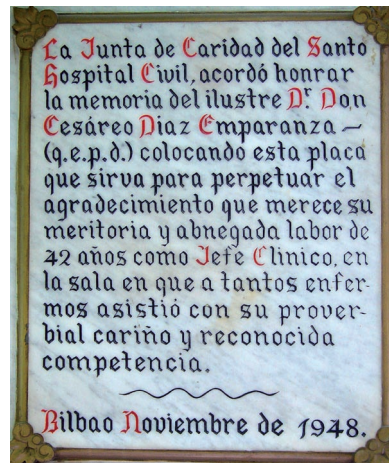 La Junta de Caridad del Santo
Hospital Civil, acordó honrar
la memoria del ilustre Dr. Don
Cesáreo Diaz Emparanza –
(q.e.p.d.) colocando esta placa
que sirva para perpetuar el
agradecimiento que merece su
meritoria y abnegada labor de
42 años como Jefe Clinico, en
la sala en que a tantos enfer-
mos asistió con su prover-
bial cariño y reconocida
competencia.
Bilbao Noviembre de 1948.